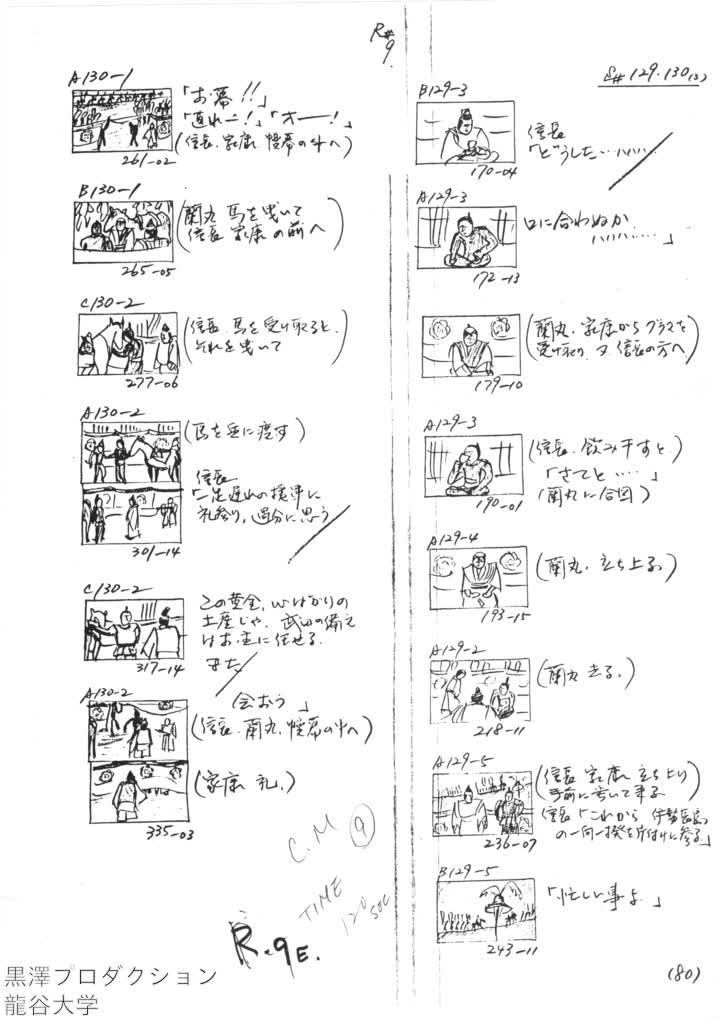 R#
9
S# 129.130(2)
B129-3
170-04
信長
「どうした‥‥ハハハ‥‥
A129-3
172-13
口に合わぬか
ハハハハ‥‥」
(蘭丸、家康からグラスを
受け取り、又 信長の方へ)
179-10
A129-3
(信長、飲み干すと)
「さてと‥‥」
(蘭丸に合図)
190-01
A129-4
(蘭丸、立ち上る)
193-15
A129-2
(蘭丸 走る)
218-11
A129-5
(信長 家康 立ち上り
手前に歩いて来る)
信長「これから 伊勢長島
の一向一揆を片付けに参る」
236-07
B129-5
「忙しい事よ」
243-11
(80)
A130-1
「お幕!!」
「直れー!」「オー!」
(信長、家康 幔幕の外へ)
261-02
B130-1
(蘭丸 馬を曳いて
信長 家康の前へ)
265-05
C130-2
(信長、馬を受け取ると、
それを曳いて
277-06
A130-2
(馬を 渡す)
信長
礼参り、過分に思う
301-14
C130-2
この黄金、いばかりの
土産じゃ、武田の備え
はお主に任せる
また
317-14
A130-2
会おう」
(信長、蘭丸、幔幕の中へ)
(家康 礼)
335-03
C.M
9
TIME
120 SEC
R.9E.
黒澤プロダクション
龍谷大学